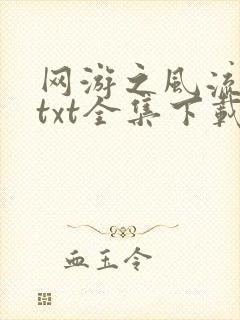 网游之风流
txt全集下载
血玉令